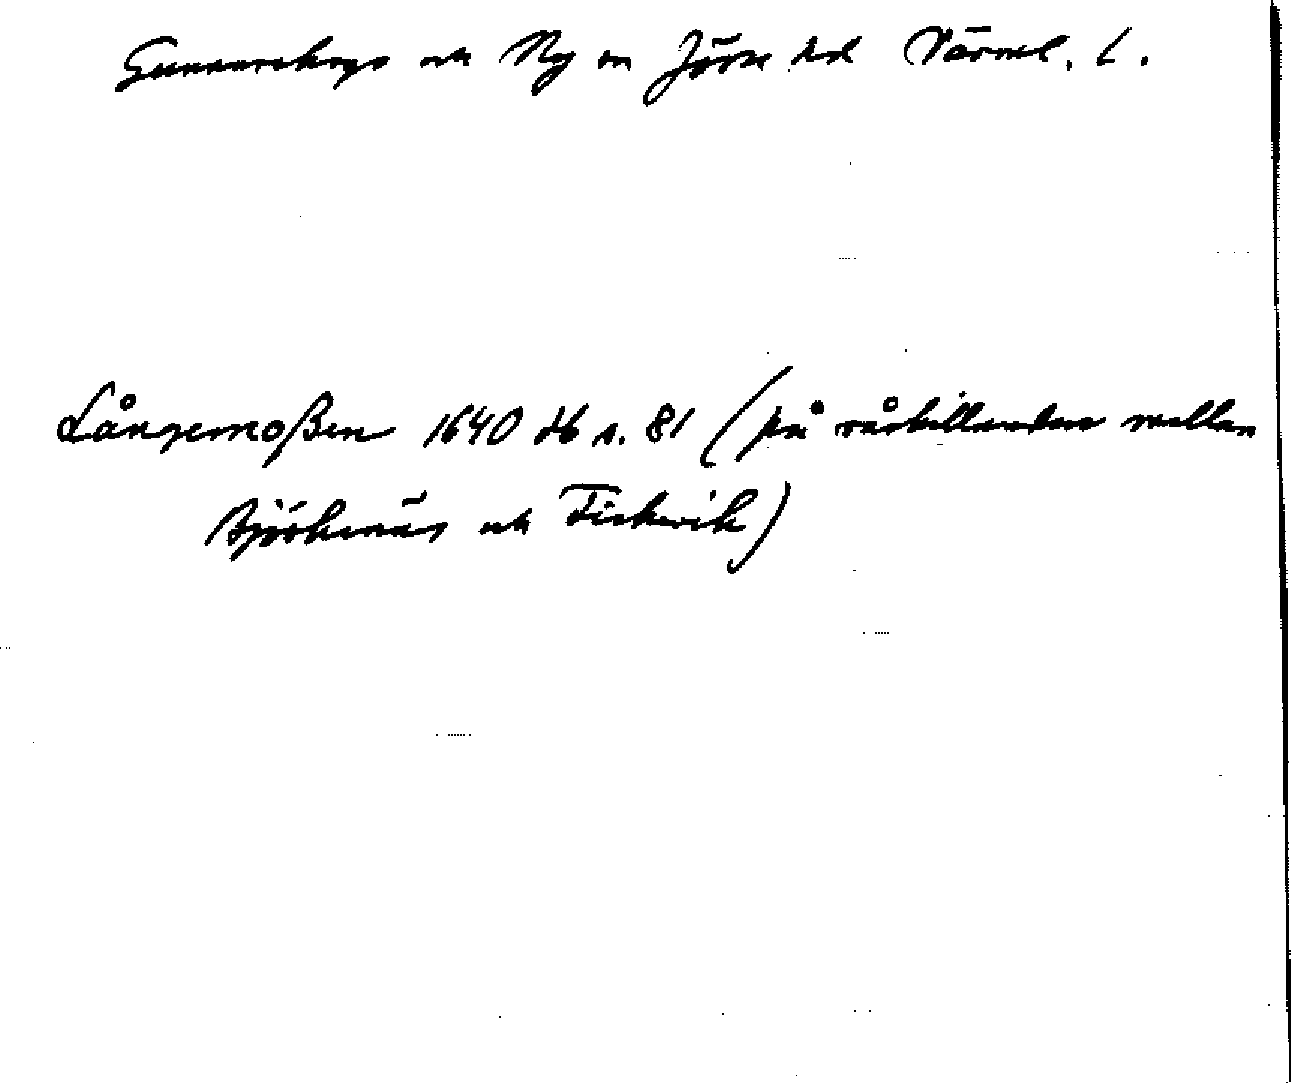 Gunnarskogs och Ny sn Jösse hd Värml. l.
Långemoßen 1640 db s. 81 (på råskillnaden mellan
Björkenäs och Fiskevik)